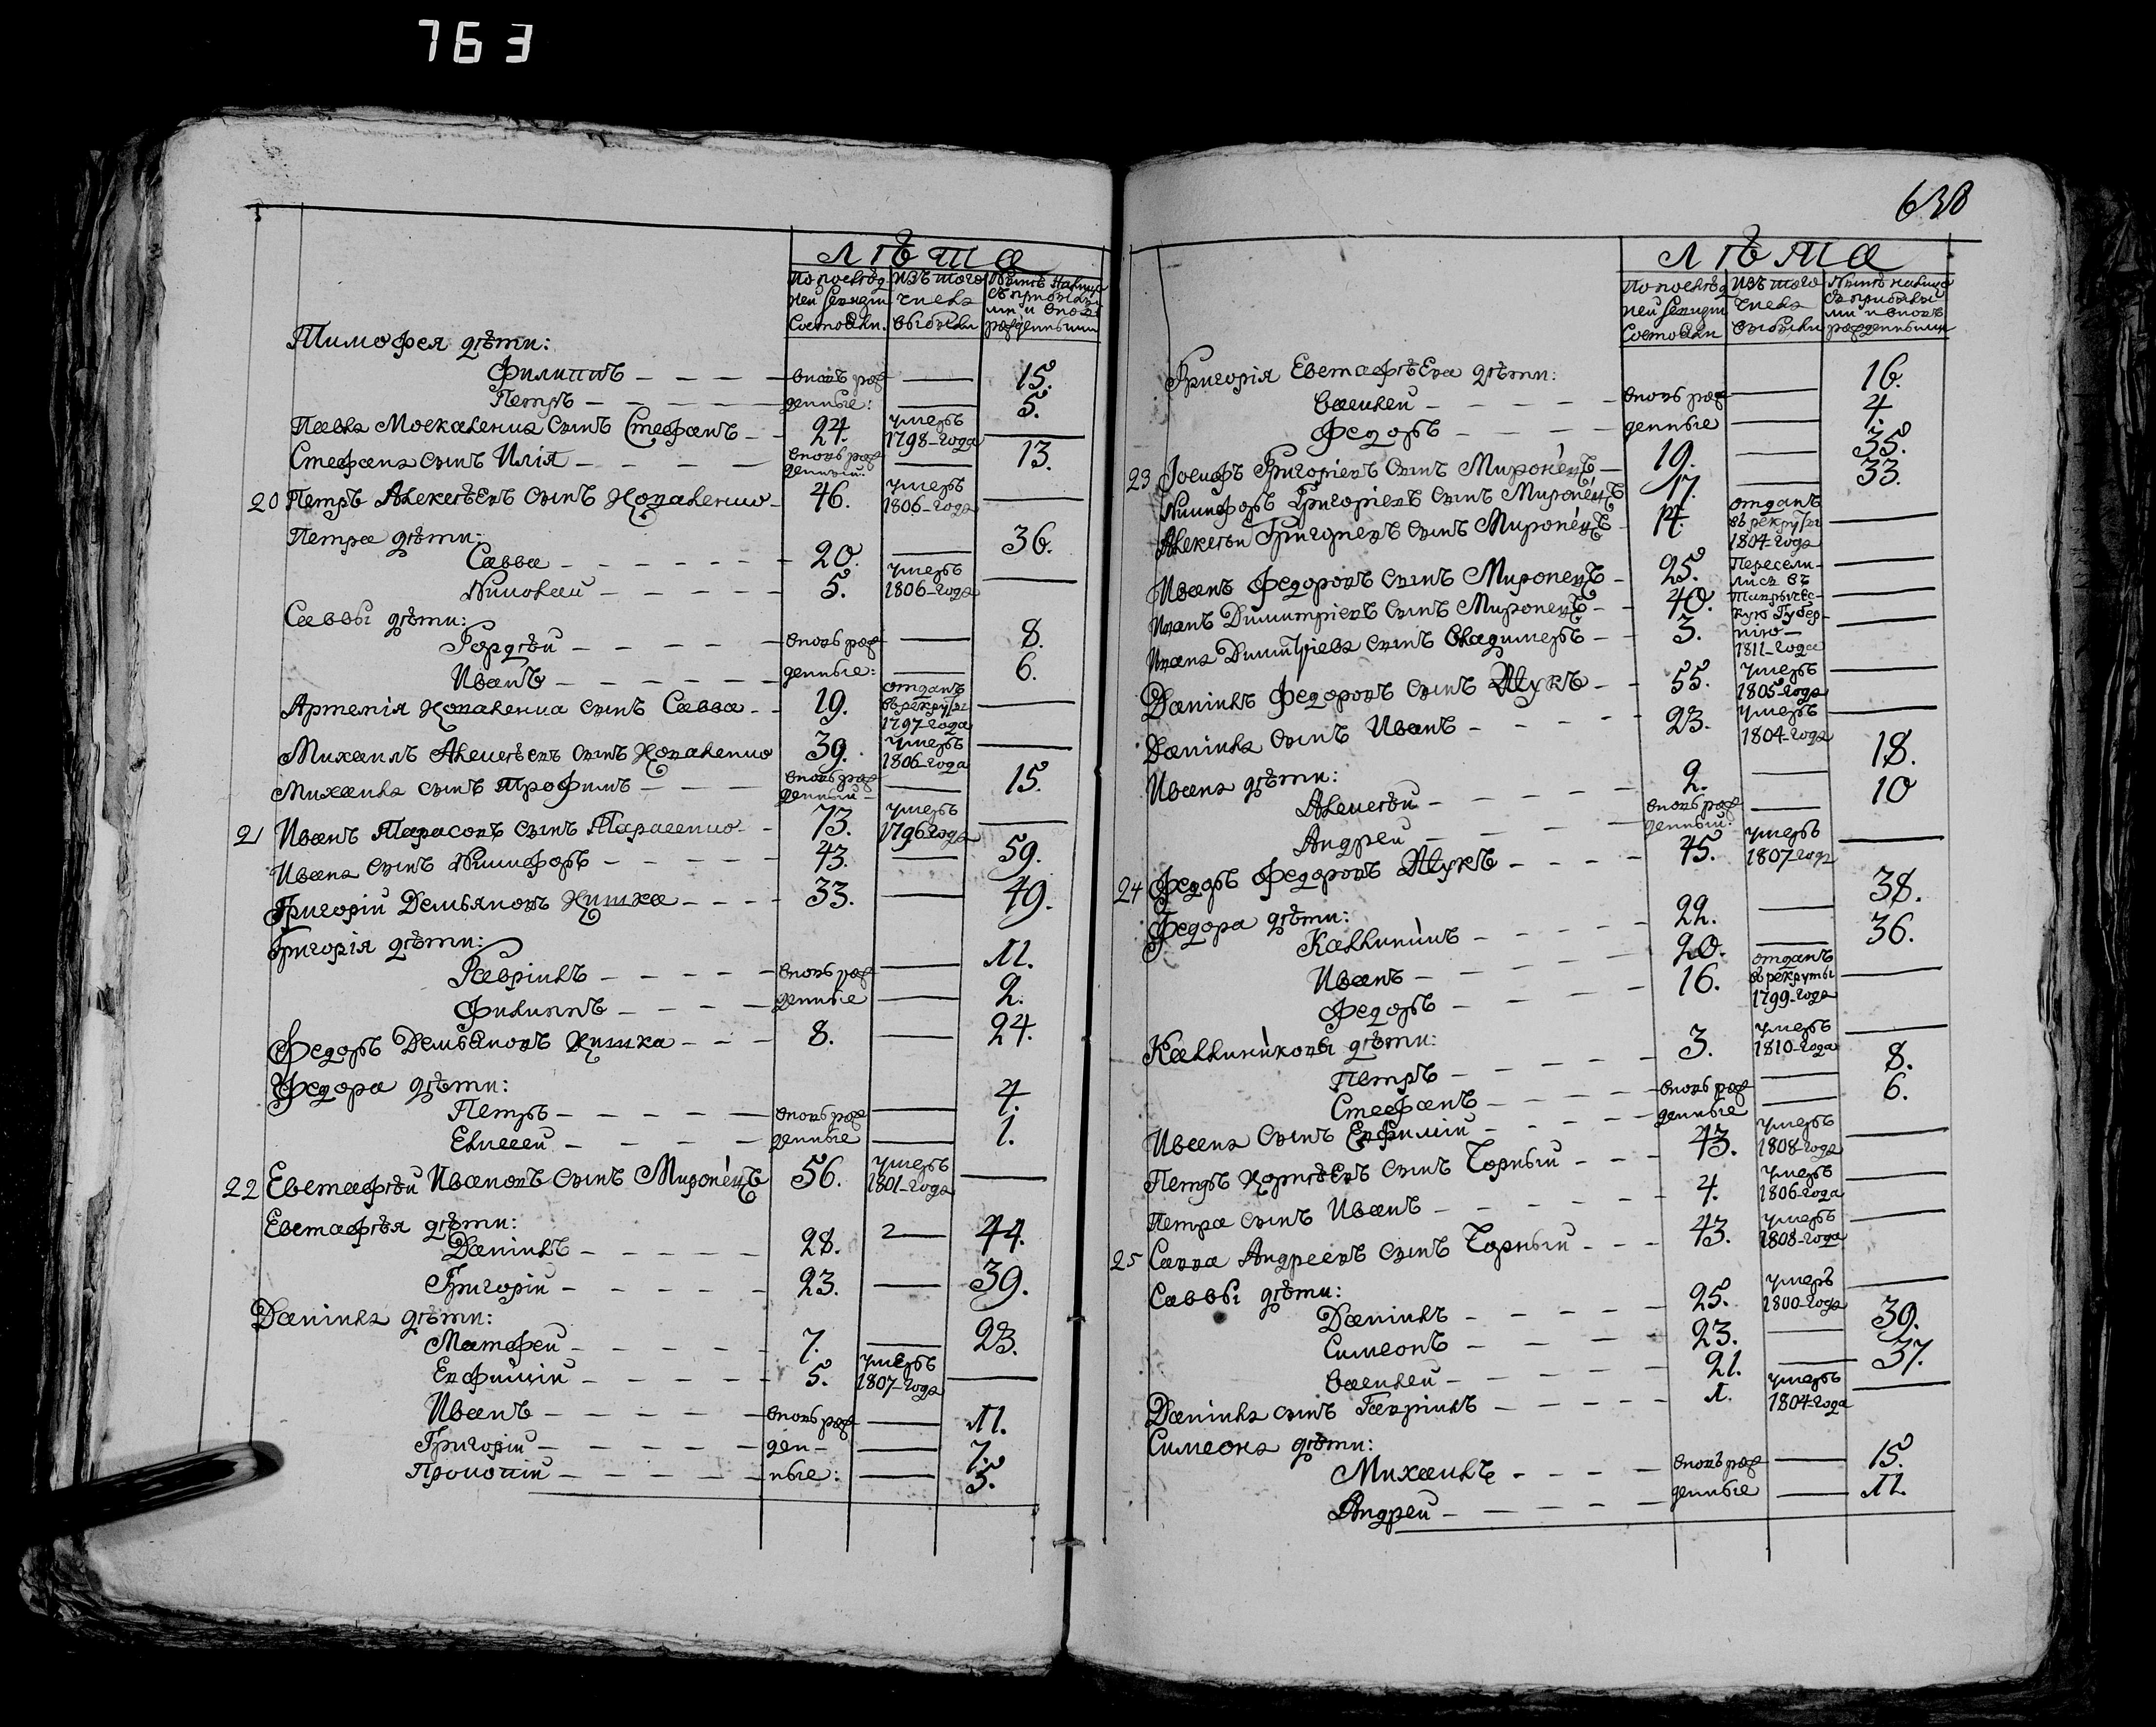 763
ЛѢТА
По последней ревизіи состояли. Изъ того числа выбыли Нынѣ на лице съ прибылыми и вновь рожденными
Тимофея дѣти:
Филиппъ — вновь рож 15.
Петръ — денные: 5.
Павла Москаленка сынъ Стефанъ — 24. умеръ 1798-года
Стефана сынъ Илія — вновь рожденный: 13.
20 Петръ Алексѣевъ сынъ Коваленко 46. умеръ 1806-года
Петра дѣти:
Савва — 20. 36.
Николай — 5. умеръ 1806-года
Саввы дѣти:
Гордѣй — вновь рож 8.
Иванъ — денные: 6.
Артемія Коваленка сынъ Савва — 19. отданъ в рекруты 1797-года
Михаилъ Алексѣевъ сынъ Коваленко 39. умеръ 1806-года
Михаила сынъ Трофимъ — вновь рожденный 15.
21 Иванъ Тарасовъ сынъ Тарасенко — 73. умеръ 1796-года
Ивана сынъ Никифоръ — 43. 59.
Григорій Демьяновъ Кушка — 33. 49.
Григорія дѣти:
Гавріилъ — вновь рож 11.
Филиппъ — денные 2.
Федоръ Демьяновъ Кушка — 8. 24.
Федора дѣти:
Петръ — вновь рож 4.
Елисей — денные 1.
22 Евстафѣй Ивановъ сынъ Миронецъ 56. умеръ 1801-года
Евстафѣя дѣти:
Данилъ — 28. 44.
Григорій — 23. 39.
Данила дѣти:
Матфей — 7. 23.
Евфимій — 5. умеръ 1807-года
Иванъ — вновь рож 11.
Григорій — ден- 7.
Прокопій — ные: 5.
638
ЛѢТА
По последней ревизіи состояли Изъ того числа выбыли Нынѣ на лице съ прибылыми и вновь рожденными
Григорія Евстафѣева дѣти:
Василей — вновь рож 16.
Федоръ — денные 4.
23 Іосифъ Григоріевъ сынъ Миронецъ — 19. 35.
Никифоръ Григоріевъ сынъ Миронецъ 17. 33.
Алексѣй Григорьевъ сынъ Миронецъ — 14. отданъ въ рекруты 1804-года
Иванъ Федоровъ сынъ Миронецъ — 25. Пересели-
Иванъ Димитріевъ сынъ Миронецъ — 40. лись въ Таврическую Губер-
Ивана Димитріева сынъ Владимеръ — 3. нію — 1811-года
Данилъ Федоровъ сынъ Жукъ — 55. умеръ 1805-года
Данила сынъ Иванъ — 23. умеръ 1804-года
Ивана дѣти:
Алексѣй — 2. 18.
Андрей — вновь рожденный: 10
24 Федоръ Федоровъ Жукъ — 45. умеръ 1807-года
Федора дѣти:
Каллиникъ — 22. 38.
Иванъ — 20. 36.
Федоръ — 16. отданъ в рекруты 1799-года
Каллиниковы дѣти:
Петръ — 3. умеръ 1810-года
Стефанъ — вновь рож 8.
Ивана сынъ Евфимій — денные 6.
Петръ Корнѣевъ сынъ Чорный — 43. умеръ 1808-года
Петра сынъ Иванъ — 4. умеръ 1806-года
25 Савва Андреевъ сынъ Чорный — 43. умеръ 1808-года
Саввы дѣти:
Данилъ — 25. умеръ 1800-года
Симеонъ — 23. 39.
Василей — 21. 37.
Данила сынъ Гавріилъ — 1. умеръ 1804-года
Симеона дѣти:
Михаилъ — вновь рож 15.
Андрей — денные 11.